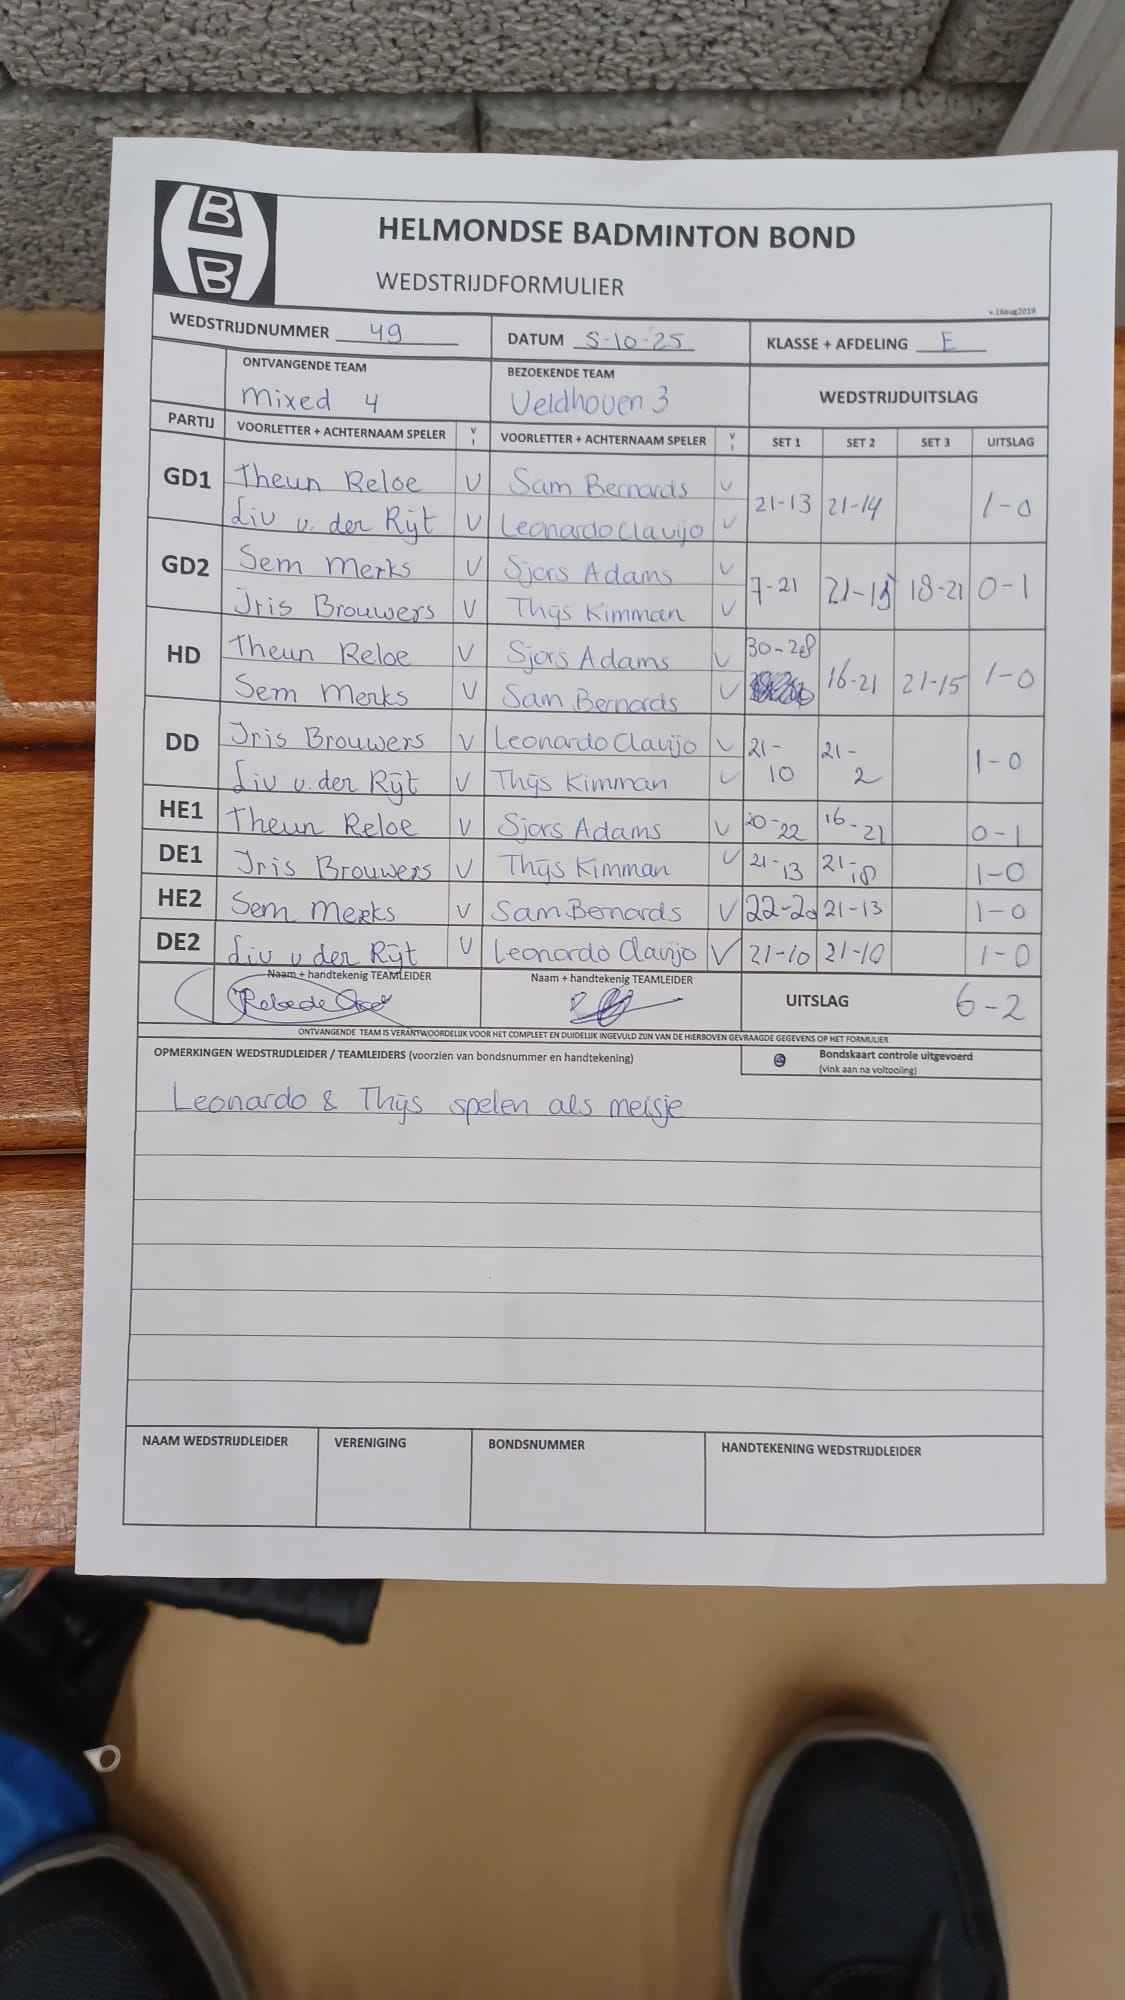 B
B
HELMONDSE BADMINTON BOND
WEDSTRIJDFORMULIER
v.16aug2019
WEDSTRIJDNUMMER 49 DATUM 5-10-25 KLASSE + AFDELING E
ONTVANGENDE TEAM BEZOEKENDE TEAM WEDSTRIJDUITSLAG
Mixed 4 Veldhoven 3
PARTIJ VOORLETTER + ACHTERNAAM SPELER V I VOORLETTER + ACHTERNAAM SPELER V I SET 1 SET 2 SET 3 UITSLAG
GD1 Theun Reloe V Sam Bernards V 21-13 21-14 1-0
Liv v. der Rijt V Leonardo Clavijo V
GD2 Sem Merks V Sjors Adams V 7-21 18-21 0-1
Iris Brouwers V Thijs Kimman V
HD Theun Reloe V Sjors Adams V 30-28 16-21 21-15 1-0
Sem Merks V Sam Bernards V
DD Iris Brouwers V Leonardo Clavijo V 21-10 21-2 1-0
Liv v. der Rijt V Thijs Kimman V
HE1 Theun Reloe V Sjors Adams V 20-22 16-21 0-1
DE1 Iris Brouwers V Thijs Kimman V 21-13 21-18 1-0
HE2 Sem Merks V Sam Bernards V 22-20 21-13 1-0
DE2 Liv v der Rijt V Leonardo Clavijo V 21-10 21-10 1-0
Naam + handtekenig TEAMLEIDER Naam + handtekenig TEAMLEIDER UITSLAG 6-2
ONTVANGENDE TEAM IS VERANTWOORDELIJK VOOR HET COMPLEET EN DUIDELIJK INGEVULD ZIJN VAN DE HIERBOVEN GEVRAAGDE GEGEVENS OP HET FORMULIER
OPMERKINGEN WEDSTRIJDLEIDER / TEAMLEIDERS (voorzien van bondsnummer en handtekening) Bondskaart controle uitgevoerd
(vink aan na voltooiing)
Leonardo & Thijs spelen als meisje
NAAM WEDSTRIJDLEIDER VERENIGING BONDSNUMMER HANDTEKENING WEDSTRIJDLEIDER